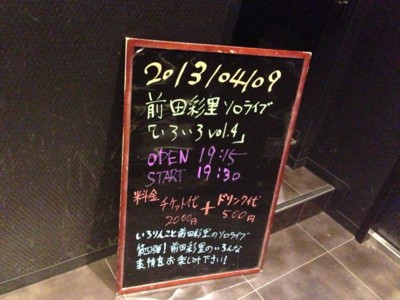 2013/04/09
前田彩里ソロライブ
「いろいろvol.4」
OPEN 19:15
START 19:30
料金 チケット代 + ドリンク代
2000円 500円
いろりんこと前田彩里のソロライブ
第四弾!前田彩里のいろんな
表情をお楽しみ下さい!